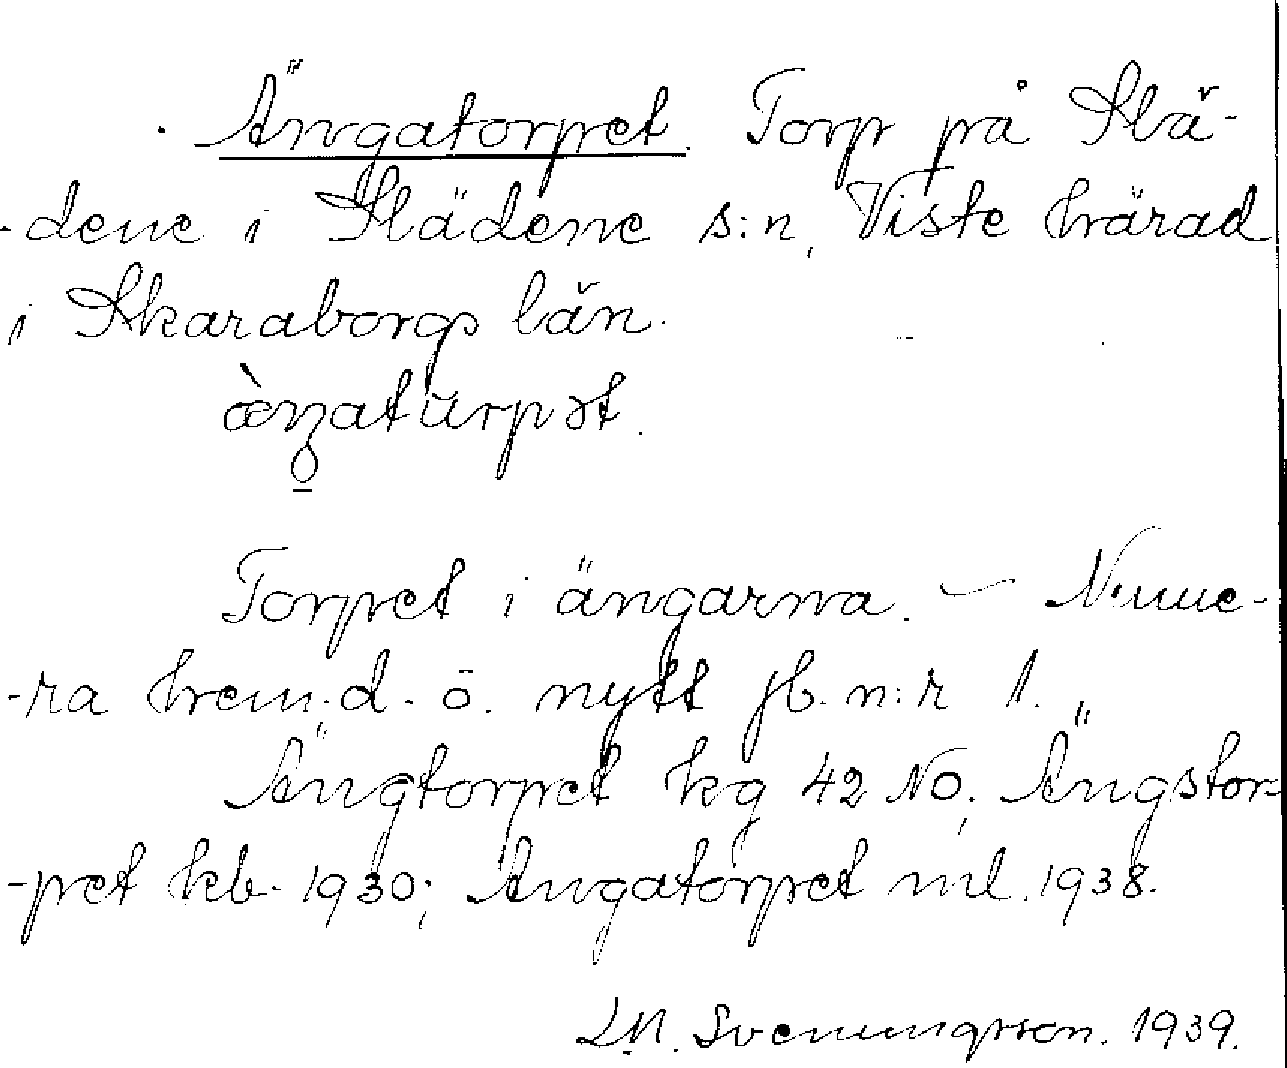 Ängatorpet. Torp på Slä-
-dene i Slädene s:n, Viste härad
i Skaraborgs län.
Torpet i ängarna. – Nume-
-ra hem.d. ö. nytt jb. n:r 1.
Ängtorpet kg 42 NO; Ängstor-
-pet kb. 1930; Ängatorpet ml. 1938.
Svenungsson. 1939.